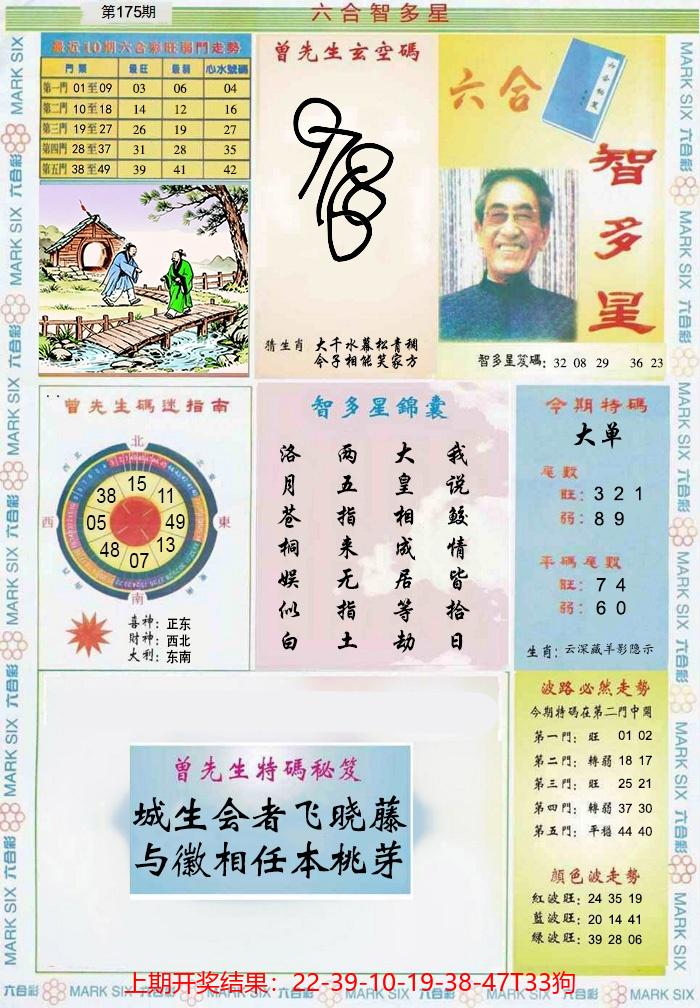 第175期
六合智多星
MARK SIX 六合彩
最近10期六合彩旺弱門走勢
門類 最旺 最弱 心水號碼
第一門 01至09 03 06 04
第二門 10至18 14 12 16
第三門 19至27 26 19 27
第四門 28至37 31 28 35
第五門 38至49 39 41 42
曾先生玄空碼
猜生肖 大千水暮松青稠
今子相能笑家方
六合
智多星
智多星笈碼: 32 08 29 36 23
曾先生碼迷指南
北
西北
東北
西
東
南
38 15 11
05 49
48 07 13
喜神: 正东
财神: 西北
大利: 东南
智多星錦囊
我说鲛情皆拾日
大皇相成居等劫
两五指来无指土
洛月苍桐娱似白
今期特碼
大单
尾數
旺: 3 2 1
弱: 8 9
平碼尾數
旺: 7 4
弱: 6 0
生肖: 云深藏羊影隐示
曾先生特碼秘笈
城生会者飞晓藤
与徽相任本桃芽
波路必然走勢
今期特碼在第二門中開
第一門: 旺 01 02
第二門: 轉弱 18 17
第三門: 旺 25 21
第四門: 轉弱 37 30
第五門: 平穩 44 40
顏色波走勢
紅波旺: 24 35 19
藍波旺: 20 14 41
綠波旺: 39 28 06
上期开奖结果：22-39-10-19-38-47T33狗
六合彩 MARK SIX 六合彩 MARK SIX 六合彩 MARK SIX 六合彩 MARK SIX